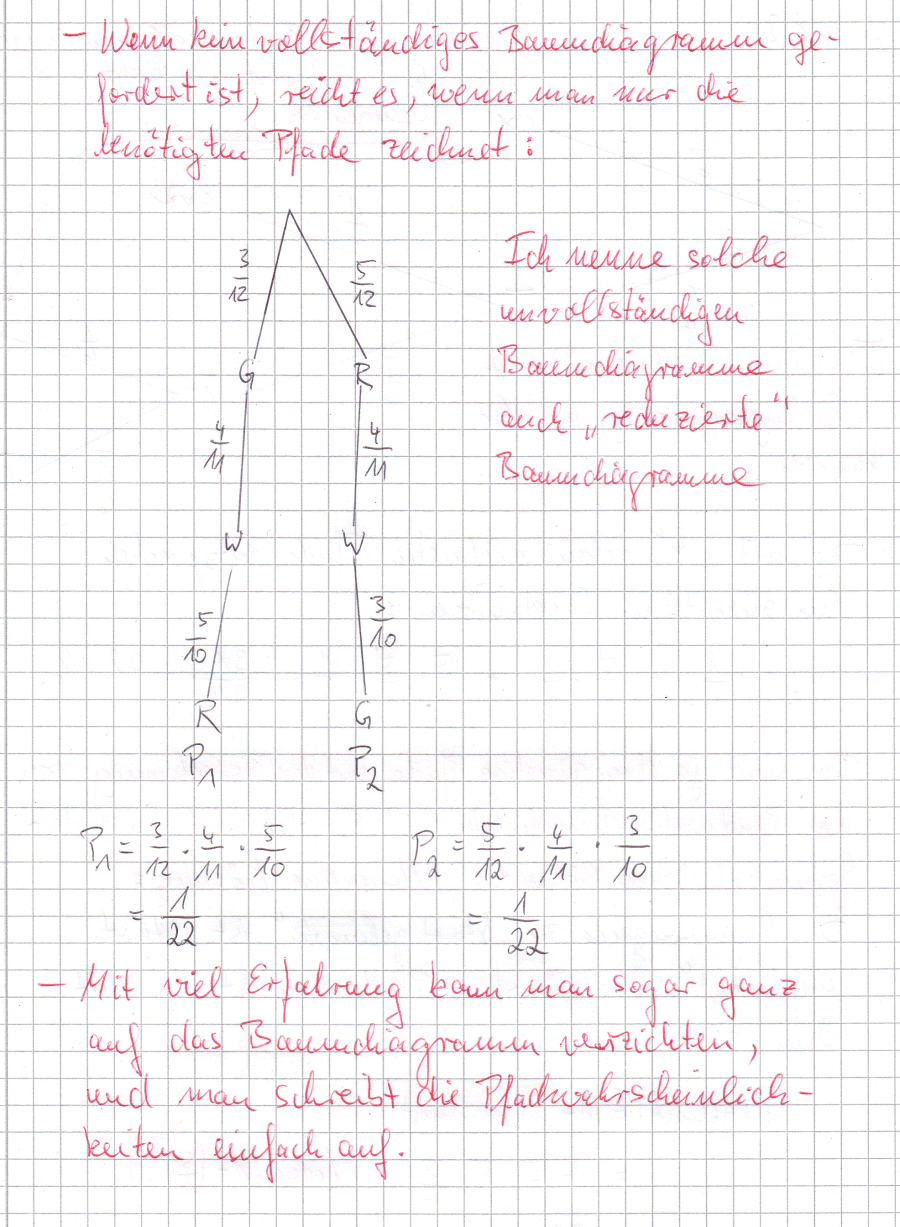 - Wenn kein vollständiges Baumdiagramm ge-
fordert ist, reicht es, wenn man nur die
benötigten Pfade zeichnet :
3/12 5/12
Ich nenne solche
unvollständigen
Baumdiagramme
auch „reduzierte“
Baumdiagramme
G R
4/11 4/11
W W
5/10 3/10
R G
P1 P2
P1 = 3/12 · 4/11 · 5/10 P2 = 5/12 · 4/11 · 3/10
= 1/22 = 1/22
- Mit viel Erfahrung kann man sogar ganz
auf das Baumdiagramm verzichten,
und man schreibt die Pfadwahrscheinlich-
keiten einfach auf.